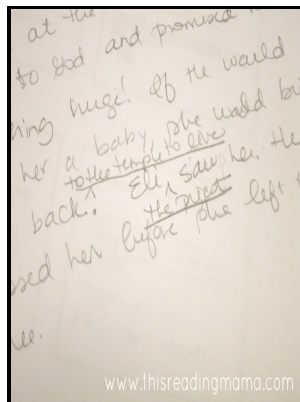 at the
to God and promised
hing huge! If He would
her a baby, she would bu
to the temple to live
back. ^ Eli ^ saw her. the
the priest
ssed her before she left
ee.
www.thisreadingmama.com